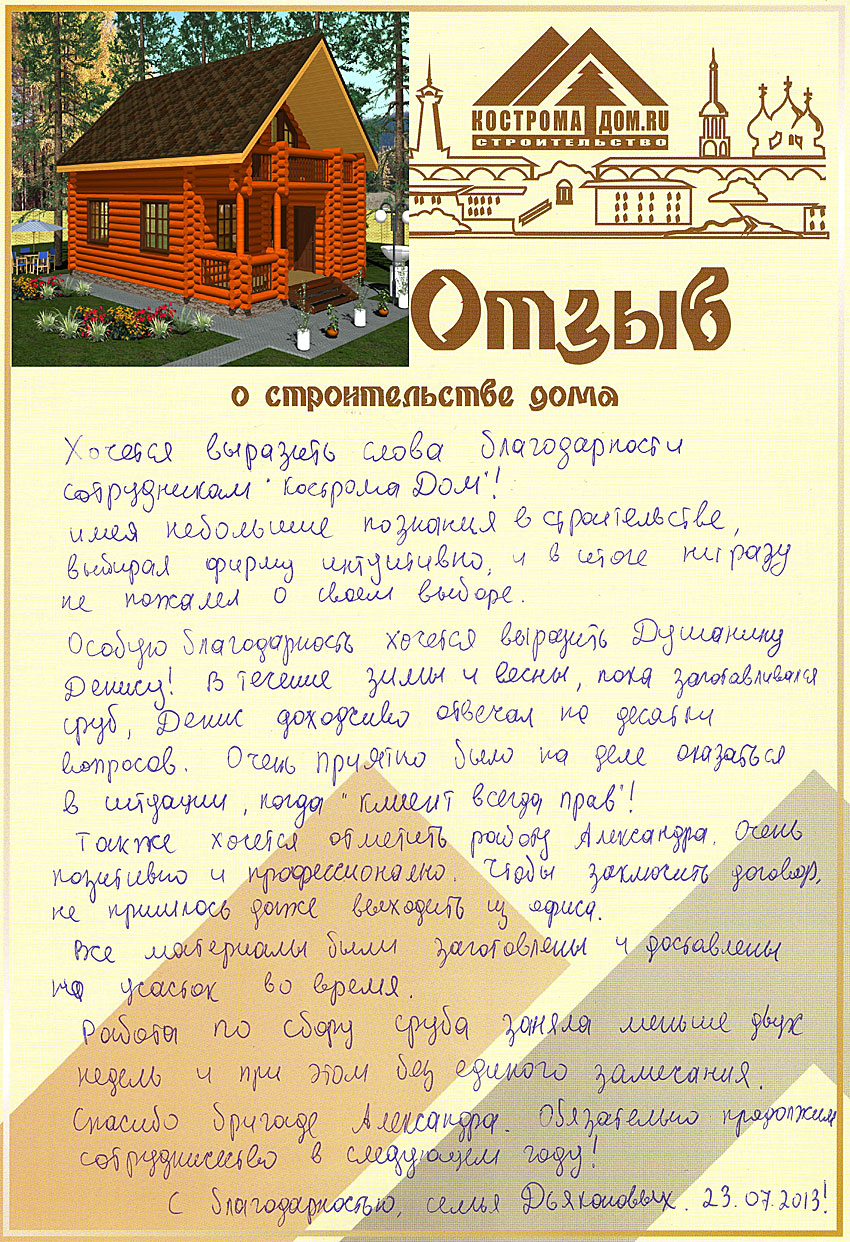 КОСТРОМА ДОМ.RU
СТРОИТЕЛЬСТВО
Отзыв
о строительстве дома
Хочется выразить слова благодарности
сотрудникам "Кострома Дом"!
имея небольшие познания в строительстве,
выбирал фирму интуитивно, и в итоге ни разу
не пожалел о своем выборе.
Особую благодарность хочется выразить Душанину
Денису! В течение зимы и весны, пока заготавливался
сруб, Денис доходчиво отвечал на десятки
вопросов. Очень приятно было на деле оказаться
в ситуации, когда "клиент всегда прав"!
Также хочется отметить работу Александра. Очень
позитивно и профессионально. Чтобы заключить договор,
не пришлось даже выходить из офиса.
Все материалы были заготовлены и доставлены
на участок во время.
Работа по сбору сруба заняла меньше двух
недель и при этом без единого замечания.
Спасибо бригаде Александра. Обязательно продолжим
сотрудничество в следующем году!
С благодарностью, семья Дьяконовых. 23.07.2013!